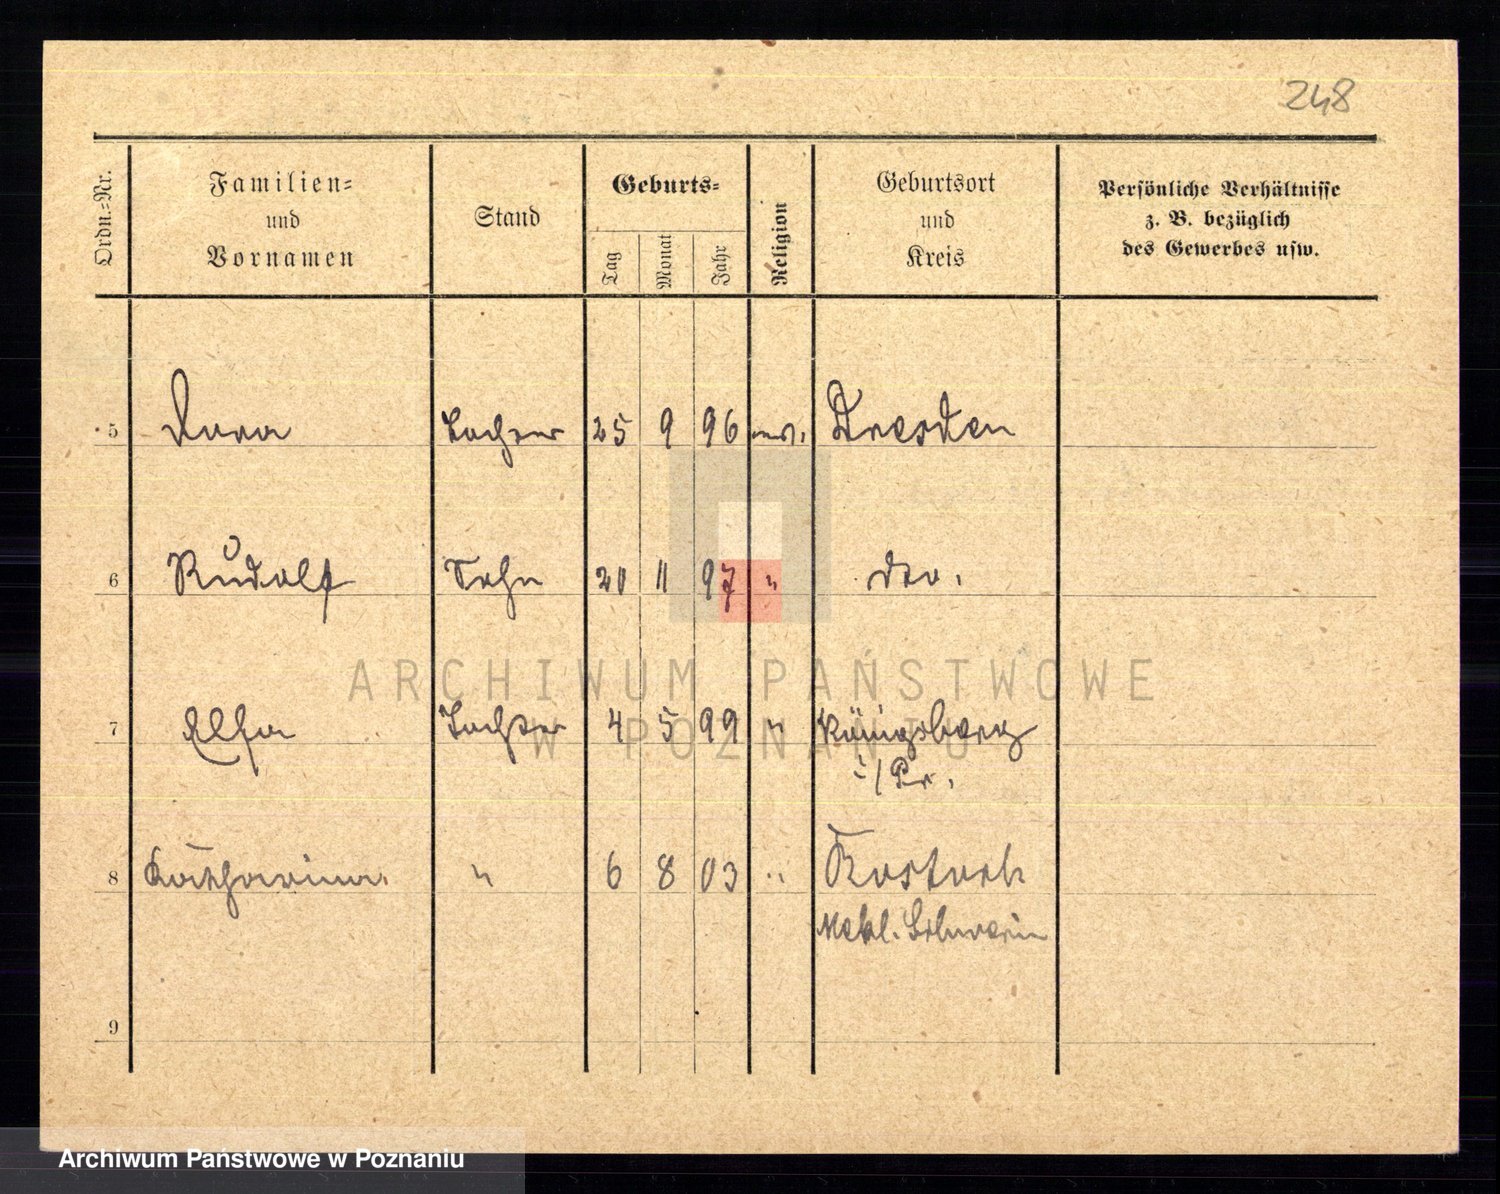 248
Ordn.-Nr.
Familien-
und
Vornamen
Stand
Geburts-
Tag
Monat
Jahr
Religion
Geburtsort
und
Kreis
Persönliche Verhältnisse
z. B. bezüglich
des Gewerbes usw.
5 Dora Tochter 25 9 96 Dresden
6 Rudolf Sohn 20 11 97 " do.
7 Elsa Tochter 4 5 99 " Königsberg
i/Pr.
8 Katharina " 6 8 03 " Rostock
Mekl. Schwerin
9
ARCHIWUM PAŃSTWOWE
W POZNANIU
Archiwum Państwowe w Poznaniu